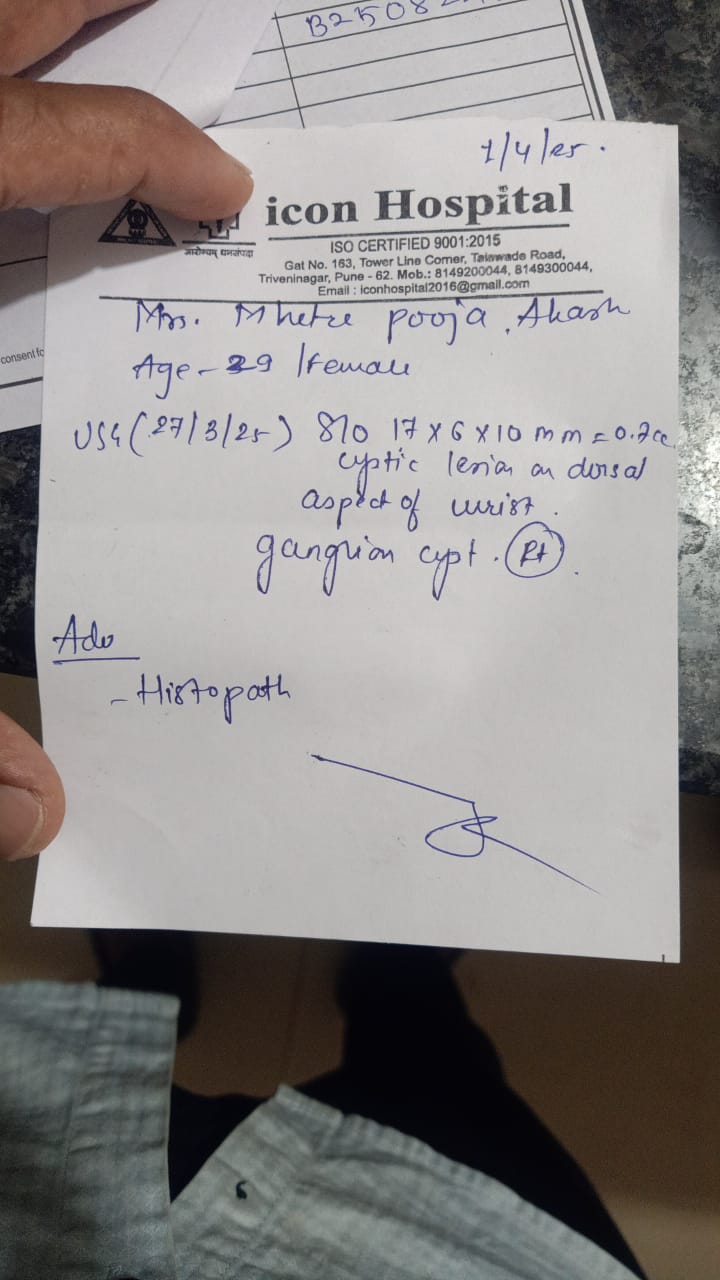 B2508
consent fo
1/4/25.
icon Hospital
आरोग्यम् धनसंपदा
ISO CERTIFIED 9001:2015
Gat No. 163, Tower Line Corner, Talawade Road,
Triveninagar, Pune - 62. Mob.: 8149200044, 8149300044,
Email : iconhospital2016@gmail.com
Mrs. Mhetre Pooja, Akash
Age - 29 / Female
USG (27/3/25) S/O 17 x 6 x 10 mm = 0.7cc
cystic lesion on dorsal
aspect of wrist.
ganglion cyst. Rt.
Adv
- Histopath